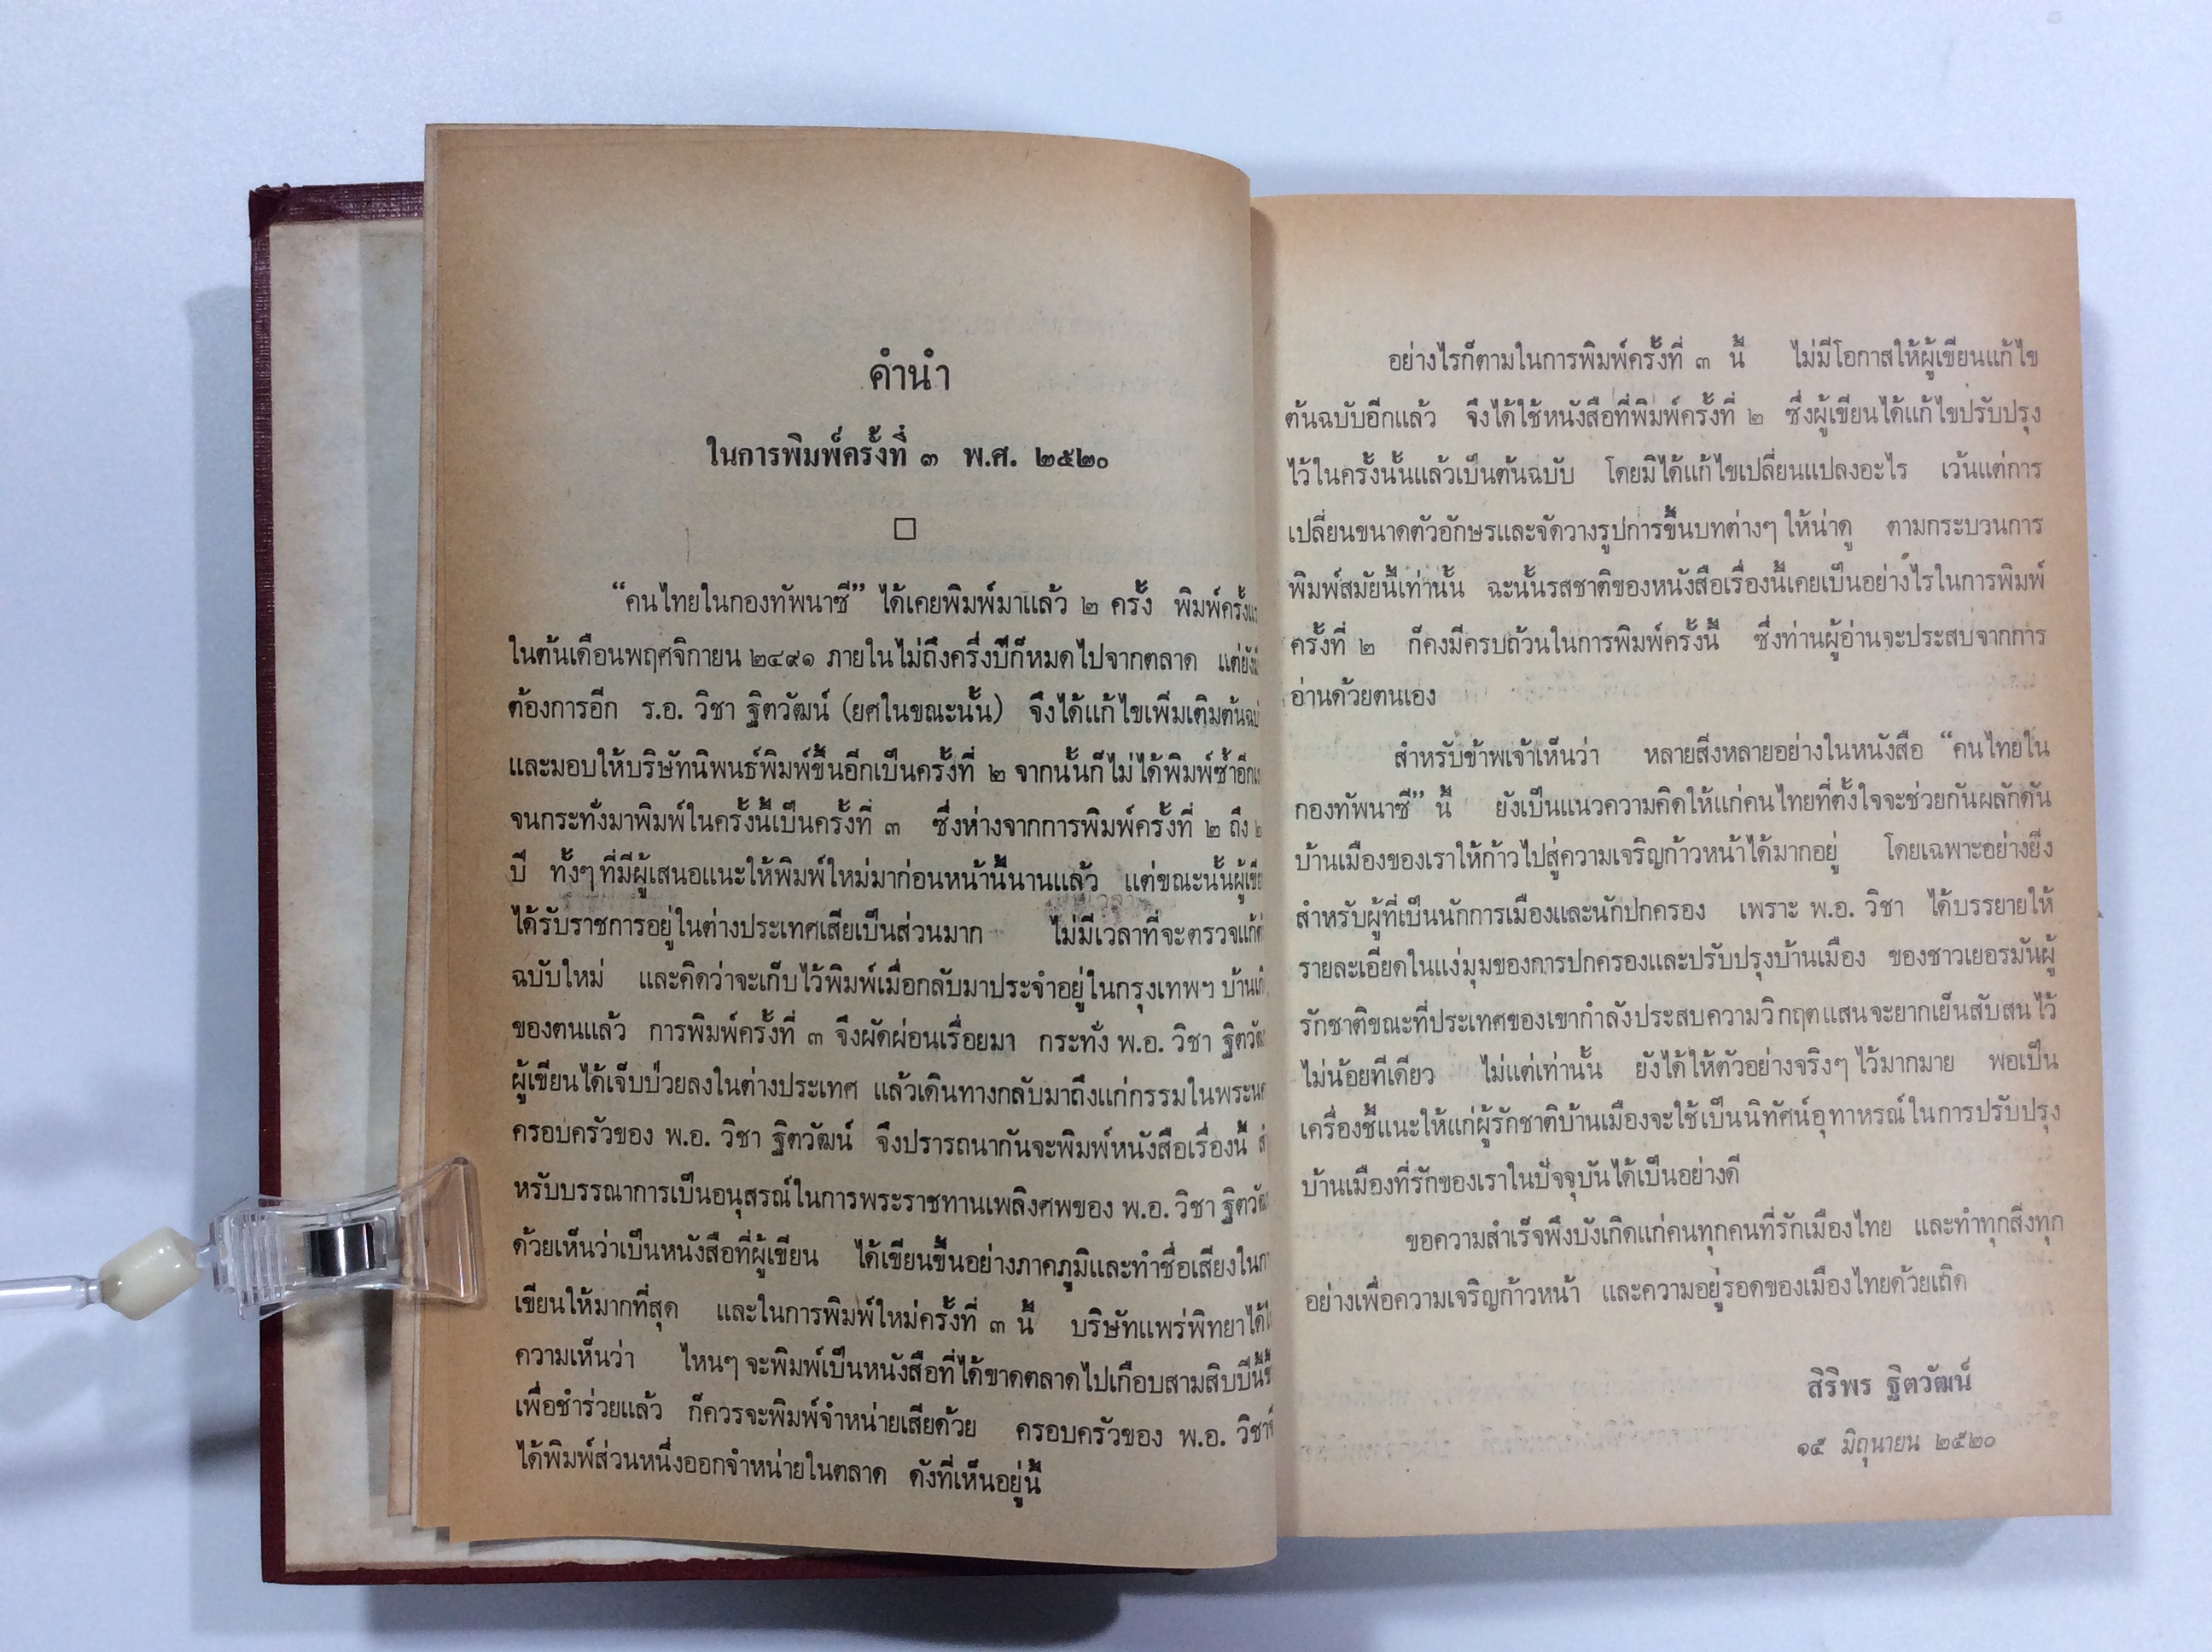 คำนำ
ในการพิมพ์ครั้งที่ ๓ พ.ศ. ๒๕๒๐
“คนไทยในกองทัพนาซี” ได้เคยพิมพ์มาแล้ว ๒ ครั้ง พิมพ์ครั้ง
ในต้นเดือนพฤศจิกายน ๒๔๙๑ ภายในไม่ถึงครึ่งปีก็หมดไปจากตลาด
ต้องการอีก ร.อ. วิชา ฐิตวัฒน์ (ยศในขณะนั้น) จึงได้แก้ไขเพิ่มเติม
และมอบให้บริษัทนิพนธ์พิมพ์ขึ้นอีกเป็นครั้งที่ ๒ จากนั้นก็ไม่ได้พิมพ์ซ้ำอีก
จนกระทั่งมาพิมพ์ในครั้งนี้เป็นครั้งที่ ๓ ซึ่งห่างจากการพิมพ์ครั้งที่ ๒ ถึง
ปี ทั้งๆ ที่มีผู้เสนอแนะให้พิมพ์ใหม่มาก่อนหน้านี้นานแล้ว แต่ขณะนั้น
ได้รับราชการอยู่ในต่างประเทศเสียเป็นส่วนมาก ไม่มีเวลาที่จะตรวจแก้
ฉบับใหม่ และคิดว่าจะเก็บไว้พิมพ์เมื่อกลับมาประจำอยู่ในกรุงเทพฯ
ของตนแล้ว การพิมพ์ครั้งที่ ๓ จึงผัดผ่อนเรื่อยมา กระทั่ง พ.อ. วิชา
ผู้เขียนได้เจ็บป่วยลงในต่างประเทศ แล้วเดินทางกลับมาถึงแก่กรรมใน
ครอบครัวของ พ.อ. วิชา ฐิตวัฒน์ จึงปรารถนากันจะพิมพ์หนังสือเรื่องนี้
หรับบรรณาการเป็นอนุสรณ์ในการพระราชทานเพลิงศพของ พ.อ. วิชา
ด้วยเห็นว่าเป็นหนังสือที่ผู้เขียน ได้เขียนขึ้นอย่างภาคภูมิและทำชื่อเสียง
เขียนให้มากที่สุด และในการพิมพ์ใหม่ครั้งที่ ๓ นี้ บริษัทแพร่พิทยา
ความเห็นว่า ไหนๆ จะพิมพ์เป็นหนังสือที่ได้ขาดตลาดไปเกือบสามสิบปีนี้
เพื่อชำร่วยแล้ว ก็ควรจะพิมพ์จำหน่ายเสียด้วย ครอบครัวของ พ.อ. วิชา
ได้พิมพ์ส่วนหนึ่งออกจำหน่ายในตลาด ดังที่เห็นอยู่นี้
อย่างไรก็ตามในการพิมพ์ครั้งที่ ๓ นี้ ไม่มีโอกาสให้ผู้เขียนแก้ไข
ต้นฉบับอีกแล้ว จึงได้ใช้หนังสือที่พิมพ์ครั้งที่ ๒ ซึ่งผู้เขียนได้แก้ไขปรับปรุง
ไว้ในครั้งนั้นแล้วเป็นต้นฉบับ โดยมิได้แก้ไขเปลี่ยนแปลงอะไร เว้นแต่การ
เปลี่ยนขนาดตัวอักษรและจัดวางรูปการขึ้นบทต่างๆ ให้น่าดู ตามกระบวนการ
พิมพ์สมัยนี้เท่านั้น ฉะนั้นรสชาติของหนังสือเรื่องนี้เคยเป็นอย่างไรในการพิมพ์
ครั้งที่ ๒ ก็คงมีครบถ้วนในการพิมพ์ครั้งนี้ ซึ่งท่านผู้อ่านจะประสบจากการ
อ่านด้วยตนเอง
สำหรับข้าพเจ้าเห็นว่า หลายสิ่งหลายอย่างในหนังสือ “คนไทยใน
กองทัพนาซี” นี้ ยังเป็นแนวความคิดให้แก่คนไทยที่ตั้งใจจะช่วยกันผลักดัน
บ้านเมืองของเราให้ก้าวไปสู่ความเจริญก้าวหน้าได้มากอยู่ โดยเฉพาะอย่างยิ่ง
สำหรับผู้ที่เป็นนักการเมืองและนักปกครอง เพราะ พ.อ. วิชา ได้บรรยายให้
รายละเอียดในแง่มุมของการปกครองและปรับปรุงบ้านเมือง ของชาวเยอรมันผู้
รักชาติขณะที่ประเทศของเขากำลังประสบความวิกฤตแสนจะยากเย็นสับสนไว้
ไม่น้อยทีเดียว ไม่แต่เท่านั้น ยังได้ให้ตัวอย่างจริงๆ ไว้มากมาย พอเป็น
เครื่องชี้แนะให้แก่ผู้รักชาติบ้านเมืองจะใช้เป็นนิทัศน์อุทาหรณ์ในการปรับปรุง
บ้านเมืองที่รักของเราในปัจจุบันได้เป็นอย่างดี
ขอความสำเร็จพึงบังเกิดแก่คนทุกคนที่รักเมืองไทย และทำทุกสิ่งทุก
อย่างเพื่อความเจริญก้าวหน้า และความอยู่รอดของเมืองไทยด้วยเถิด
สิริพร ฐิตวัฒน์
๑๕ มิถุนายน ๒๕๒๐